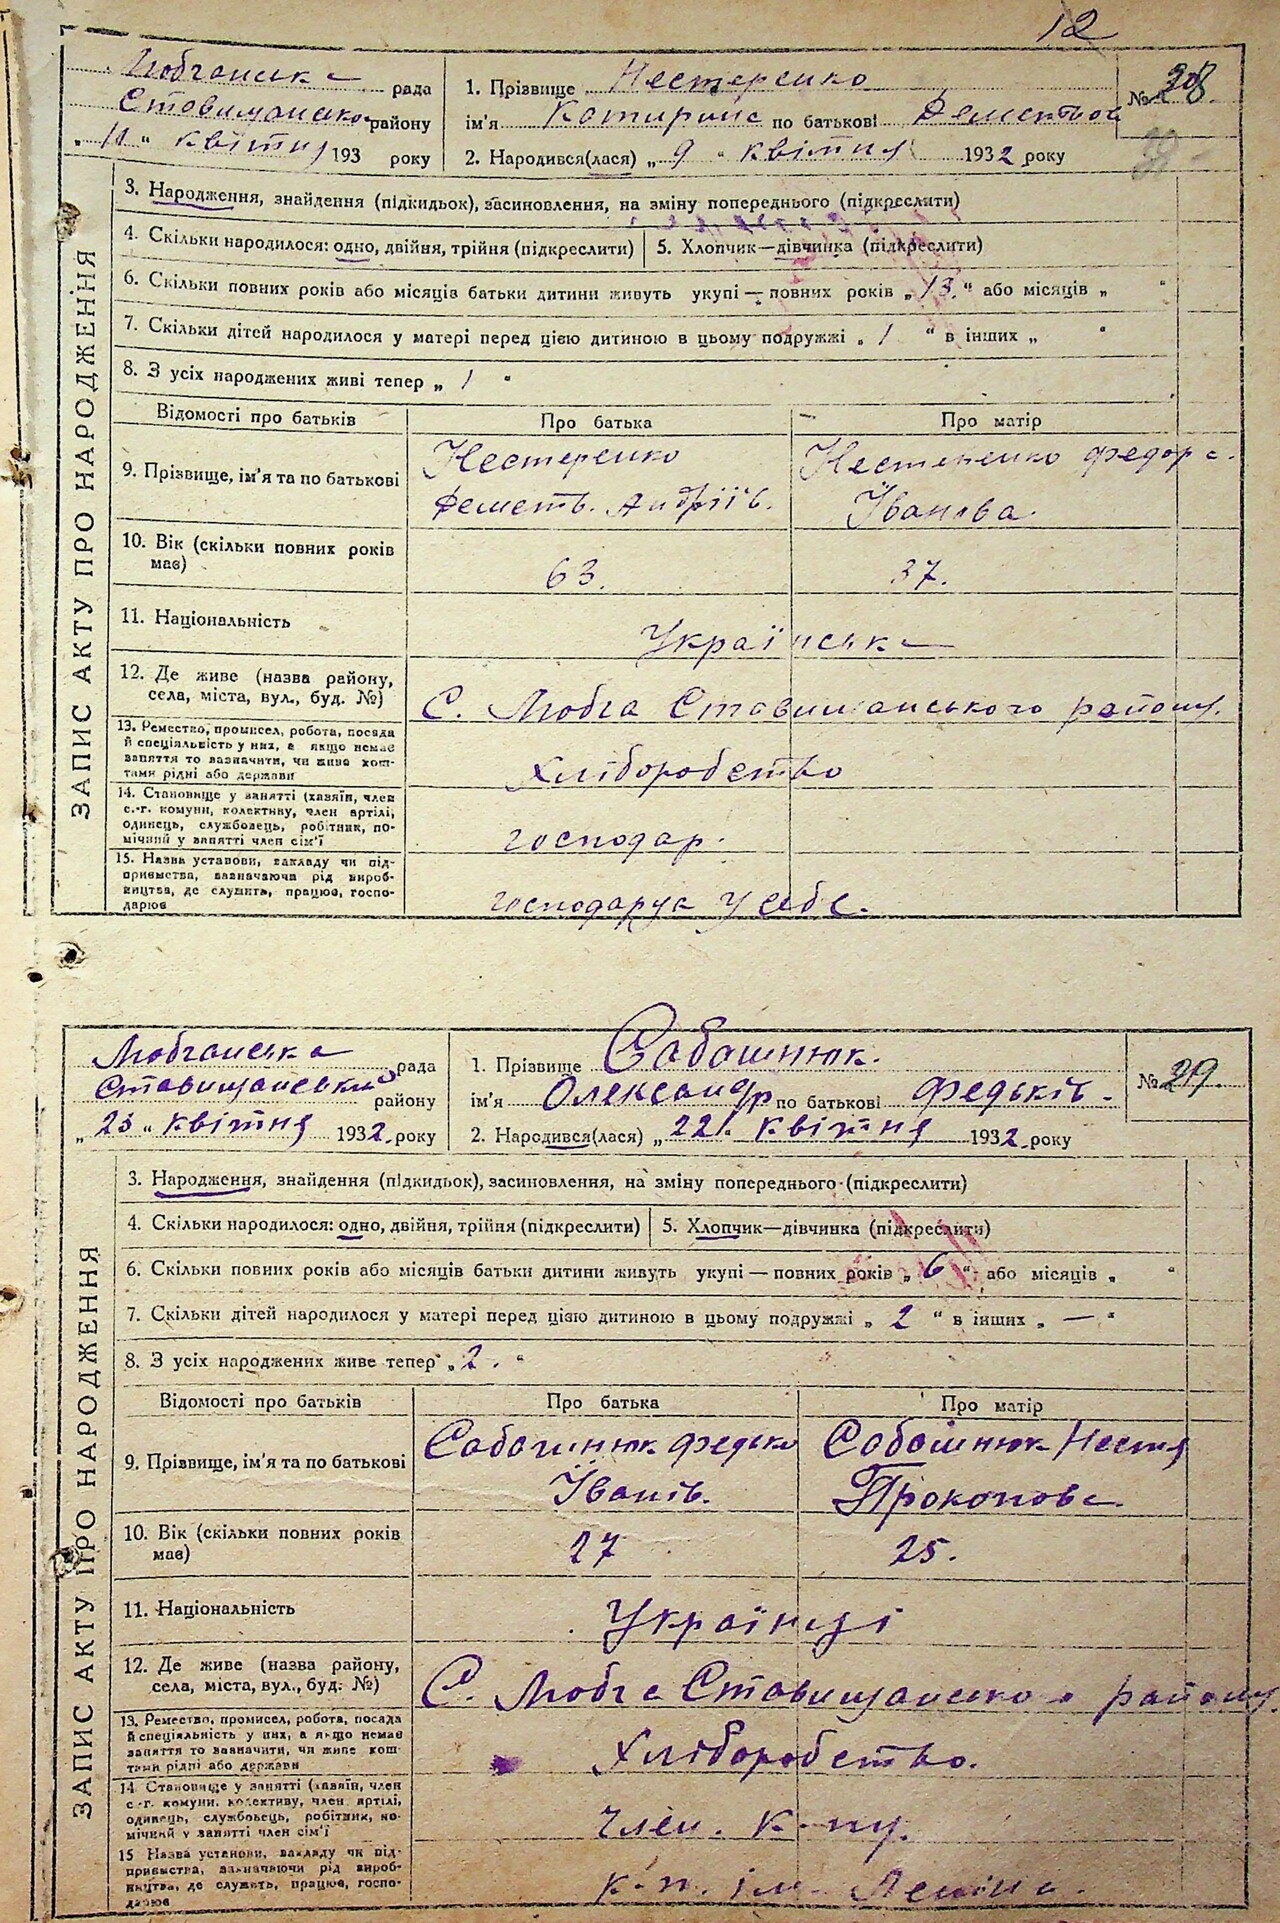 12
Любчанська рада
Ставищанського району
„ 11 “ квітня 193 року
1. Прізвище Нестеренко
ім'я Катирина по батькові Дементьова
2. Народився(лася) „ 9 “ квітня 1932 року
№ 208.
ЗАПИС АКТУ ПРО НАРОДЖЕННЯ
3. Народження, знайдення (підкидьок), засиновлення, на зміну попереднього (підкреслити)
4. Скільки народилося: одно, двійня, трійня (підкреслити) 5. Хлопчик—дівчинка (підкреслити)
6. Скільки повних років або місяців батьки дитини живуть укупі — повних років „ 13. “ або місяців „ “
7. Скільки дітей народилося у матері перед цією дитиною в цьому подружжі „ 1 “ в інших „ “
8. З усіх народжених живі тепер „ 1 “
Відомості про батьків Про батька Про матір
9. Прізвище, ім'я та по батькові
Нестеренко
Деметь. Андріїв.
Нестененко Федора.
Іванова
10. Вік (скільки повних років має) 63. 37.
11. Національність Українська
12. Де живе (назва району,
села, міста, вул., буд. №) С. Любча Ставищанського району.
13. Ремество, промисел, робота, посада
й спеціяльність у них, а якщо немає
заняття то зазначити, чи живе кош-
тами рідні або держави
Хліборобство
14. Становище у занятті (хазяїн, член
с.-г. комуни, колективу, член артілі,
одинець, службовець, робітник, по-
мічний у занятті член сім'ї
господар.
15. Назва установи, закладу чи під-
приємства, зазначаючи рід вироб-
ництва, де служить, працює, госпо-
дарює
господарує у себе.
Любчанська рада
Ставищанського району
„ 23 “ квітня 1932 року
1. Прізвище Сабошнюк.
ім'я Олександр по батькові Федьків.
2. Народився(лася) „ 22. квітня 1932 року
№ 219.
ЗАПИС АКТУ ПРО НАРОДЖЕННЯ
3. Народження, знайдення (підкидьок), засиновлення, на зміну попереднього (підкреслити)
4. Скільки народилося: одно, двійня, трійня (підкреслити) 5. Хлопчик—дівчинка (підкреслити)
6. Скільки повних років або місяців батьки дитини живуть укупі — повних років „ 6 “ або місяців „ “
7. Скільки дітей народилося у матері перед цією дитиною в цьому подружжі „ 2 “ в інших „ — “
8. З усіх народжених живе тепер „ 2. “
Відомості про батьків Про батька Про матір
9. Прізвище, ім'я та по батькові
Сабошнюк Федько
Іванів.
Сабошнюк Настя
Прокопова.
10. Вік (скільки повних років має) 27 25.
11. Національність Українці
12. Де живе (назва району,
села, міста, вул., буд. №) С. Любча Ставищансько о району.
13. Ремество, промисел, робота, посада
й спеціяльність у них, а якщо немає
заняття то зазначити, чи живе кош-
тами рідні або держави
Хліборобство.
14 Становище у занятті (хазяїн, член
с.-г. комуни, колективу, член артілі,
одинець, службовець, робітник, по-
мічний у занятті член сім'ї
Член. к-пу.
15 Назва установи, закладу чи під-
приємства, зазначаючи рід вироб-
ництва, де служить, працює, госпо-
дарює
к-п. ім. Леніна.